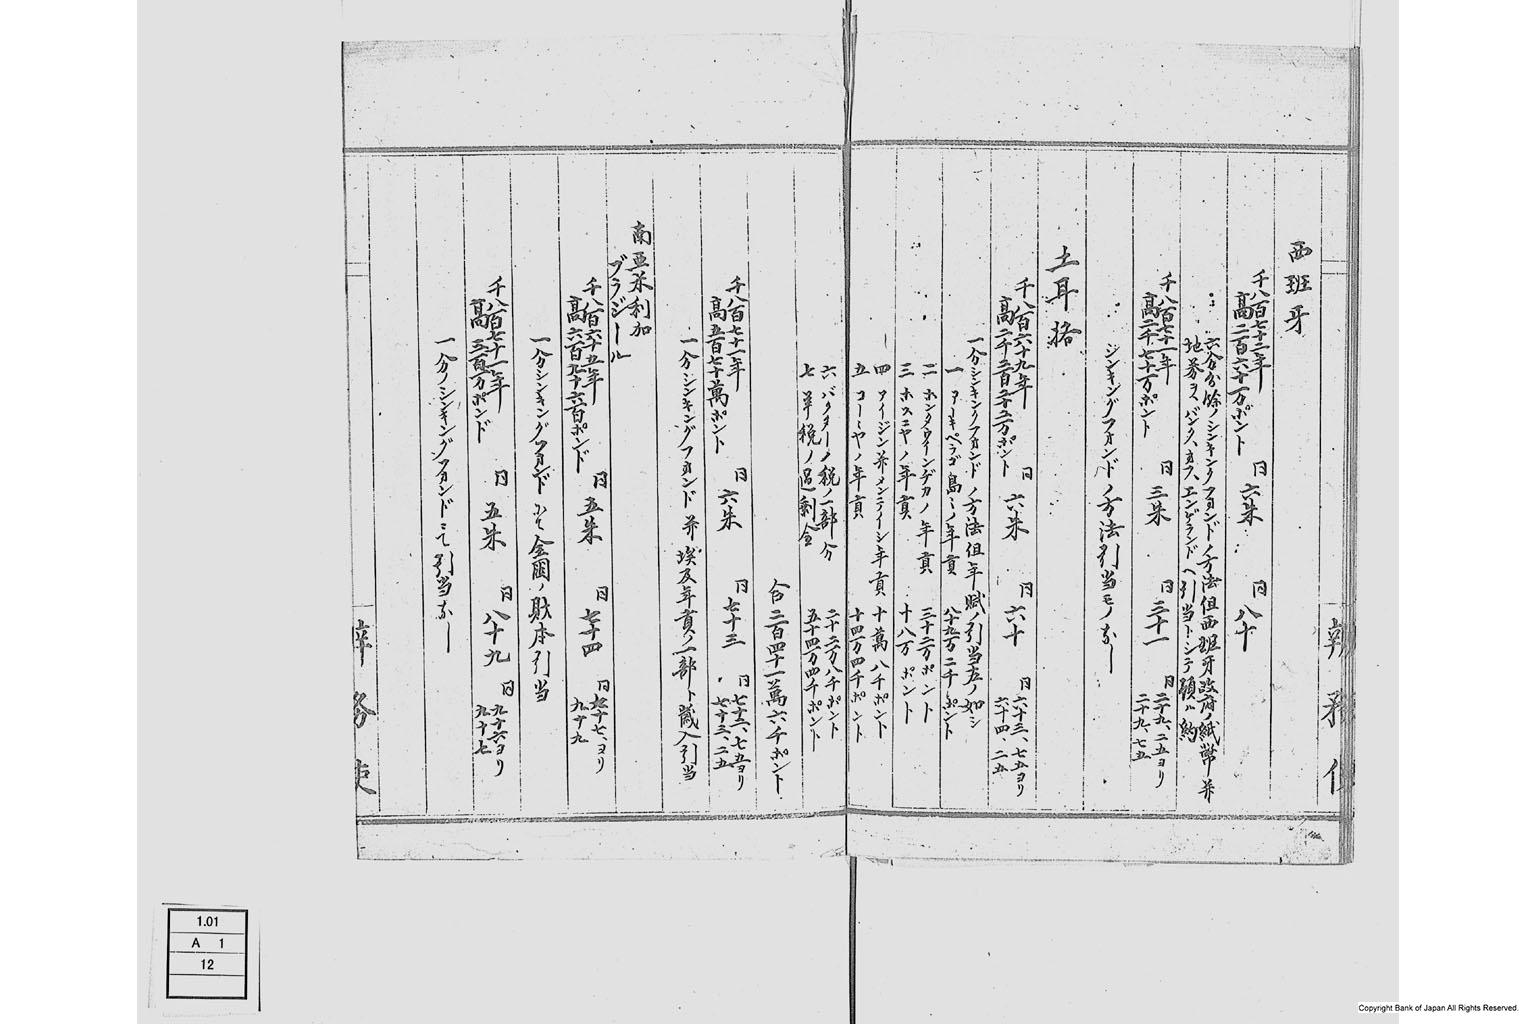 西班牙
千八百七十二年
高二百六十一万ポント 同 六朱 同 八十
六分分餘ノシンキンクフオンドノ方法但西班牙政府ノ紙幣并
地券ヲバンク、オフ、エンゲランドヘ引当トシテ預ル約
千八百七十一年
高二千七十一万ポント 同 三朱 同 三十一 同 二十九、二五ヨリ
二十九、七五
シンキングフオンドノ方法引当モノなし
土耳格
千八百六十九年
高二千二百二十二万ポント 同 六朱 同 六十 同 六十三、七五ヨリ
六十四、二五
一分シンキンクフオンドノ方法但年賦ノ引当左ノ如シ
一 アーキペラゴ島ミノ年貢 八十九万二千ポント
二 ホンタウインデカノ年貢 三十二万ポント
三 ホスニヤノ年貢 十八万ポント
四 アイジン并メンテイシ年貢 十萬八千ポント
五 コーミヤノ年貢 十四万四千ポント
六 バクターノ税ノ一部分 二十二万八千ポント
七 羊税ノ過剰金 五十四万四千ポント
合 二百四十一萬六千ポント
千八百七十一年
高五百七十萬ポント 同 六朱 同 七十三 同 七十二、七五ヨリ
七十三、二五
一分シンキングフオンド并埃及年貢ノ一部ト歳入引当
南亜米利加
ブラジール
千八百六十五年
高六百九十六百ポンド 同 五朱 同 七十四 同 九十七、ヨリ
九十九
一分シンキングフオンドにて全國ノ財本引当
千八百七十一年
高三百万ポンド 同 五朱 同 八十九 同 九十六ヨリ
九十七
一分ノシンキングフオンドにて引当なし
辨務使
1.01
A 1
12
Copyright Bank of Japan All Rights Reserved.